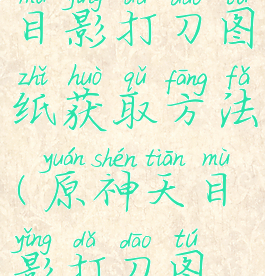 目影打刀图
zhǐ huò qǔ fāng fǎ
纸获取方法
yuán shén tiān mù
（原神天目
yǐng dǎ dāo tú
影打刀图